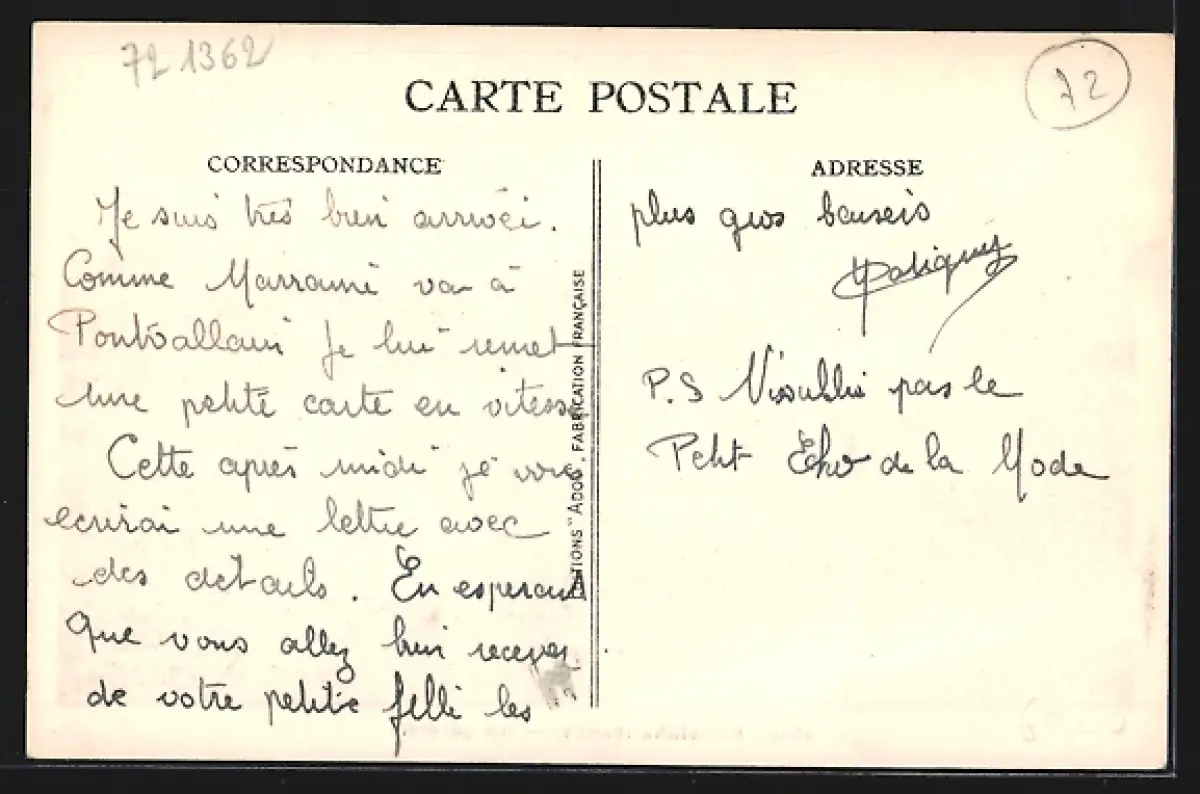 72 1362
72
CARTE POSTALE
CORRESPONDANCE
Je suis très bien arrivéi.
Comme Marraine va à
Pontvallain je lui remet
une petite carte en vitesse
Cette après midi je vous
ecrirai une lettre avec
des details. En esperant
que vous allez bien recevez
de votre petite fille les
ADRESSE
plus gros baiseis
P.S N'oublie pas le
Petit Echo de la Mode
TIONS "ADOC" FABRICATION FRANÇAISE